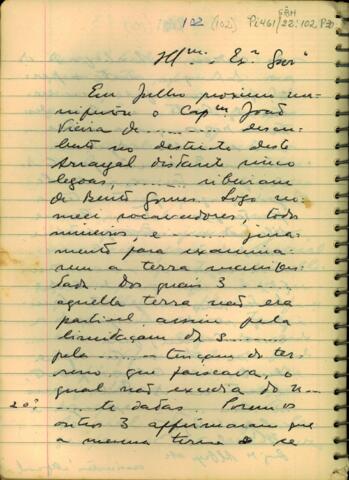 102 (102) Pi 461/22:102 P20
Illmo. e Exo. Snr.
Em Julho, proximo ma-
nifestou o Capm João
Vieira de ........ descu-
berto no destricto deste
Arrayal distante cinco
legoas, ........ ribeiram
de Bento Gomes. Logo no-
meei socavadores, todos
mineiros, e ...... jura-
mento para examina-
rem a terra manifes-
tada. Dos quais 3 ......
aquella terra não era
partivel, assim pela
limitaçam de s......
pela ........ tensam do ter-
reno, que faiscava, o
qual não excedia do n-
20? ...... te dadas. Porem os
outros 3 affirmaram que
a mesma terra se